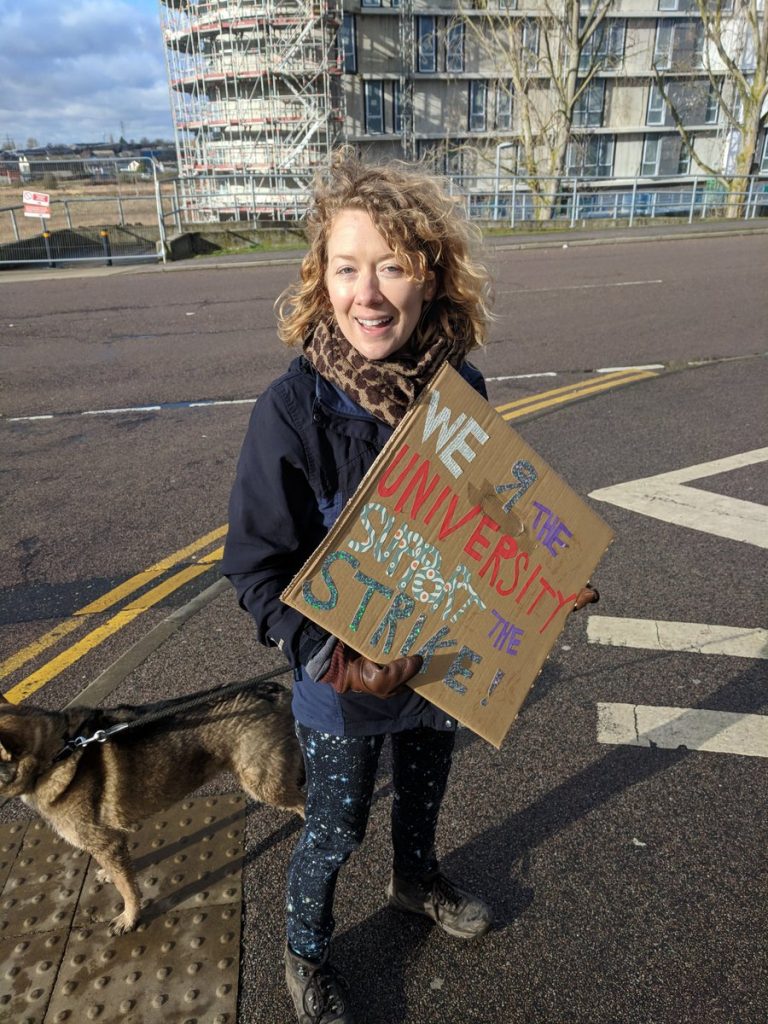 WE THE
UNIVERSITY
SUPPORT THE
STRIKE!